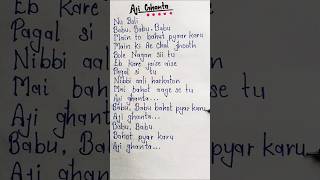 Aji Ghanta
Nu Boli
Babu, Babu, Babu
Main to bahot pyaar karu
Main ki Ae chal jhooth
Bole Nagan sii tu
Eb Kare jaise aise
Pagal si tu
Nibbi aali harkaton
Mai bahot aage se tu
Aji ghanta...
Babu, Babu bahot pyar karu
Aji ghanta...
Babu, Babu
Bahot pyar karu
Aji ghanta...